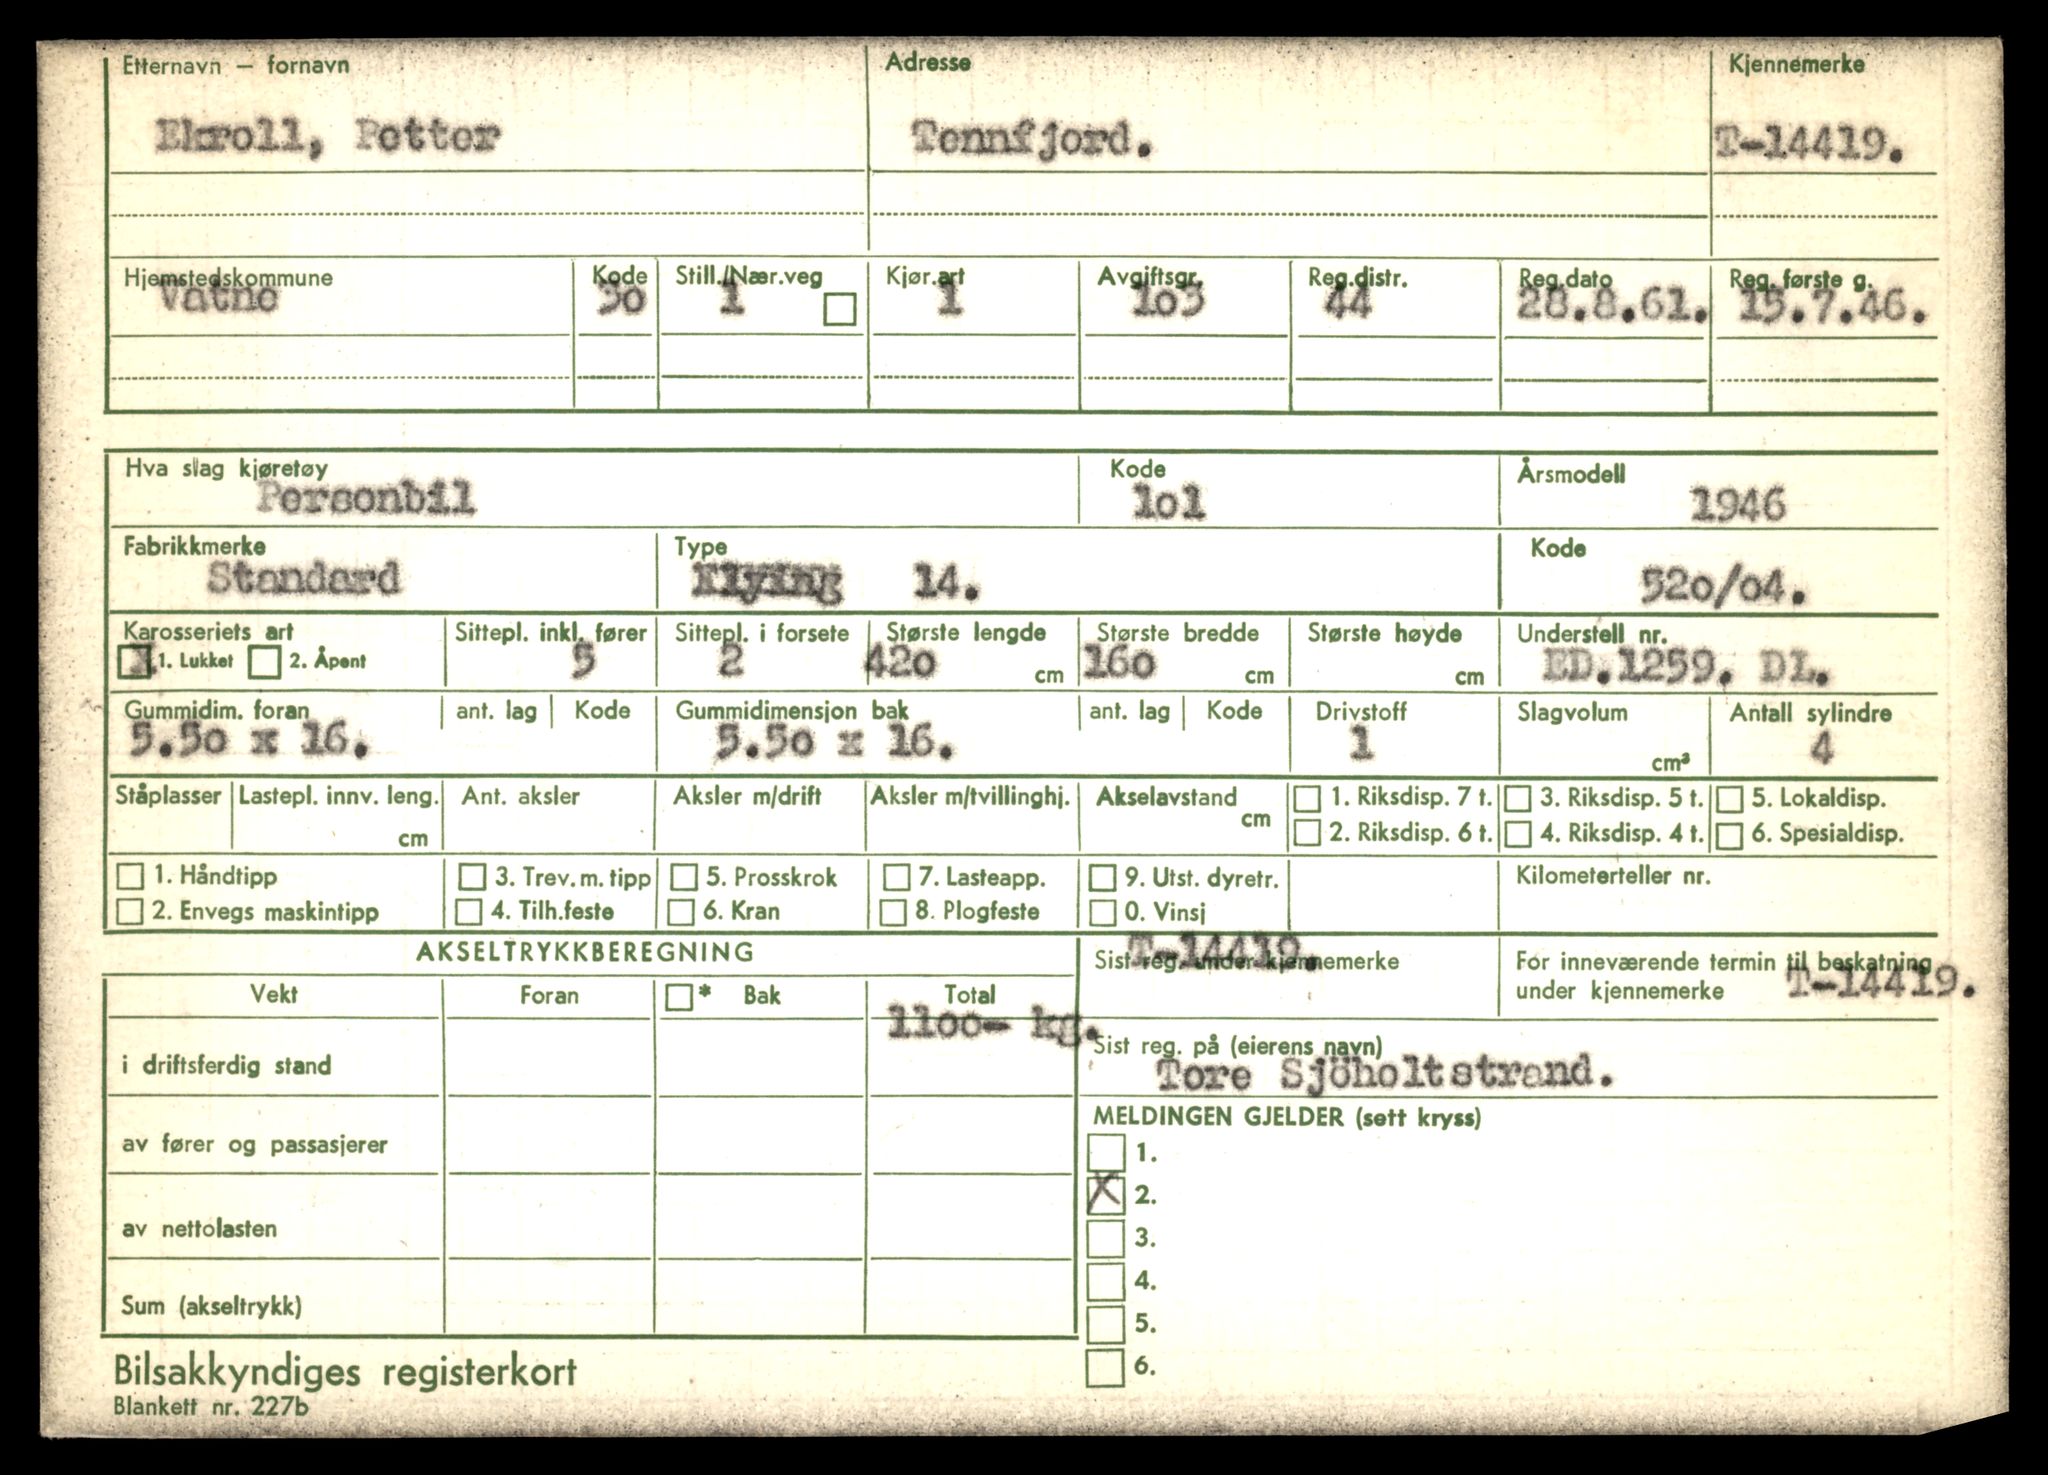 Etternavn – fornavn Adresse Kjennemerke
Ekroll, Petter Tennfjord. T-14419.
Hjemstedskommune Kode Still./Nær.veg Kjør.art Avgiftsgr. Reg.distr. Reg.dato Reg. første g.
Vatne 30 1 1 103 44 28.8.61. 15.7.46.
Hva slag kjøretøy Kode Årsmodell
Personbil 101 1946
Fabrikkmerke Type Kode
Standard 14. 520/04.
Karosseriets art Sittepl. inkl. fører Sittepl. i forsete Største lengde Største bredde Største høyde Understell nr.
X 1. Lukket 2. Åpent 5 2 420 cm 160 cm cm ED.1259. DL.
Gummidim. foran ant. lag Kode Gummidimensjon bak ant. lag Kode Drivstoff Slagvolum Antall sylindre
5.50 x 16. 5.50 x 16. 1 cm³ 4
Ståplasser Lastepl. innv. leng. Ant. aksler Aksler m/drift Aksler m/tvillinghj. Akselavstand 1. Riksdisp. 7 t. 3. Riksdisp. 5 t. 5. Lokaldisp.
cm cm 2. Riksdisp. 6 t. 4. Riksdisp. 4 t. 6. Spesialdisp.
1. Håndtipp 3. Trev. m. tipp 5. Prosskrok 7. Lasteapp. 9. Utst. dyretr. Kilometerteller nr.
2. Envegs maskintipp 4. Tilh.feste 6. Kran 8. Plogfeste 0. Vinsj
AKSELTRYKKBEREGNING
T-14419.
Sist reg. under kjennemerke For inneværende termin til beskatning
under kjennemerke T-14419.
Vekt Foran * Bak Total
1100- kg.
i driftsferdig stand
Sist reg. på (eierens navn)
Tore Sjöholtstrand.
av fører og passasjerer
av nettolasten
Sum (akseltrykk)
MELDINGEN GJELDER (sett kryss)
1.
X 2.
3.
4.
5.
6.
Bilsakkyndiges registerkort
Blankett nr. 227b